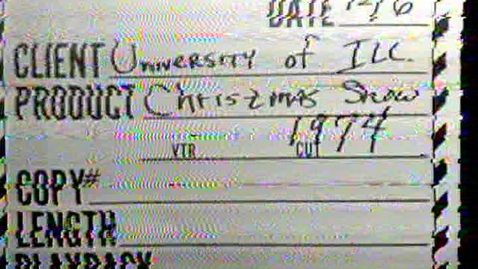 DATE 12/6
CLIENT University of ILL.
PRODUCT Christmas Show
1974
VTR CUT
COPY#
LENGTH
PLAYBACK